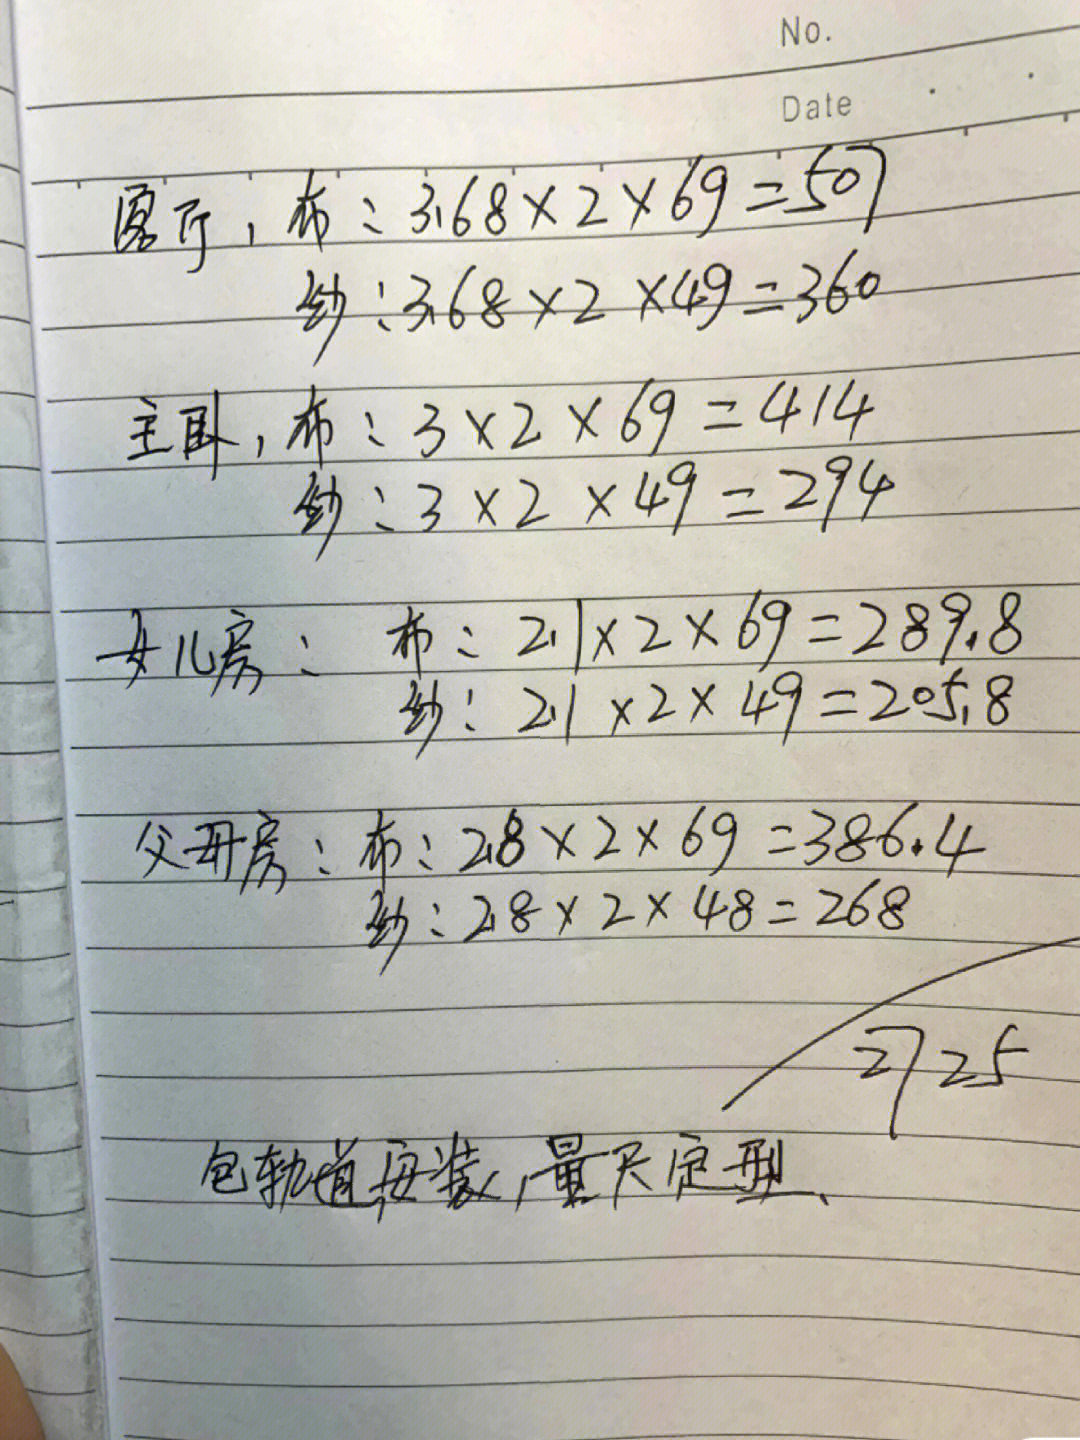 No.
Date
客厅，布：3.68×2×69=507
纱：3.68×2×49=360
主卧，布：3×2×69=414
纱：3×2×49=294
女儿房：布：2.1×2×69=289.8
纱：2.1×2×49=205.8
父母房：布：2.8×2×69=386.4
纱：2.8×2×48=268
2725
包轨道，安装，量尺定型、